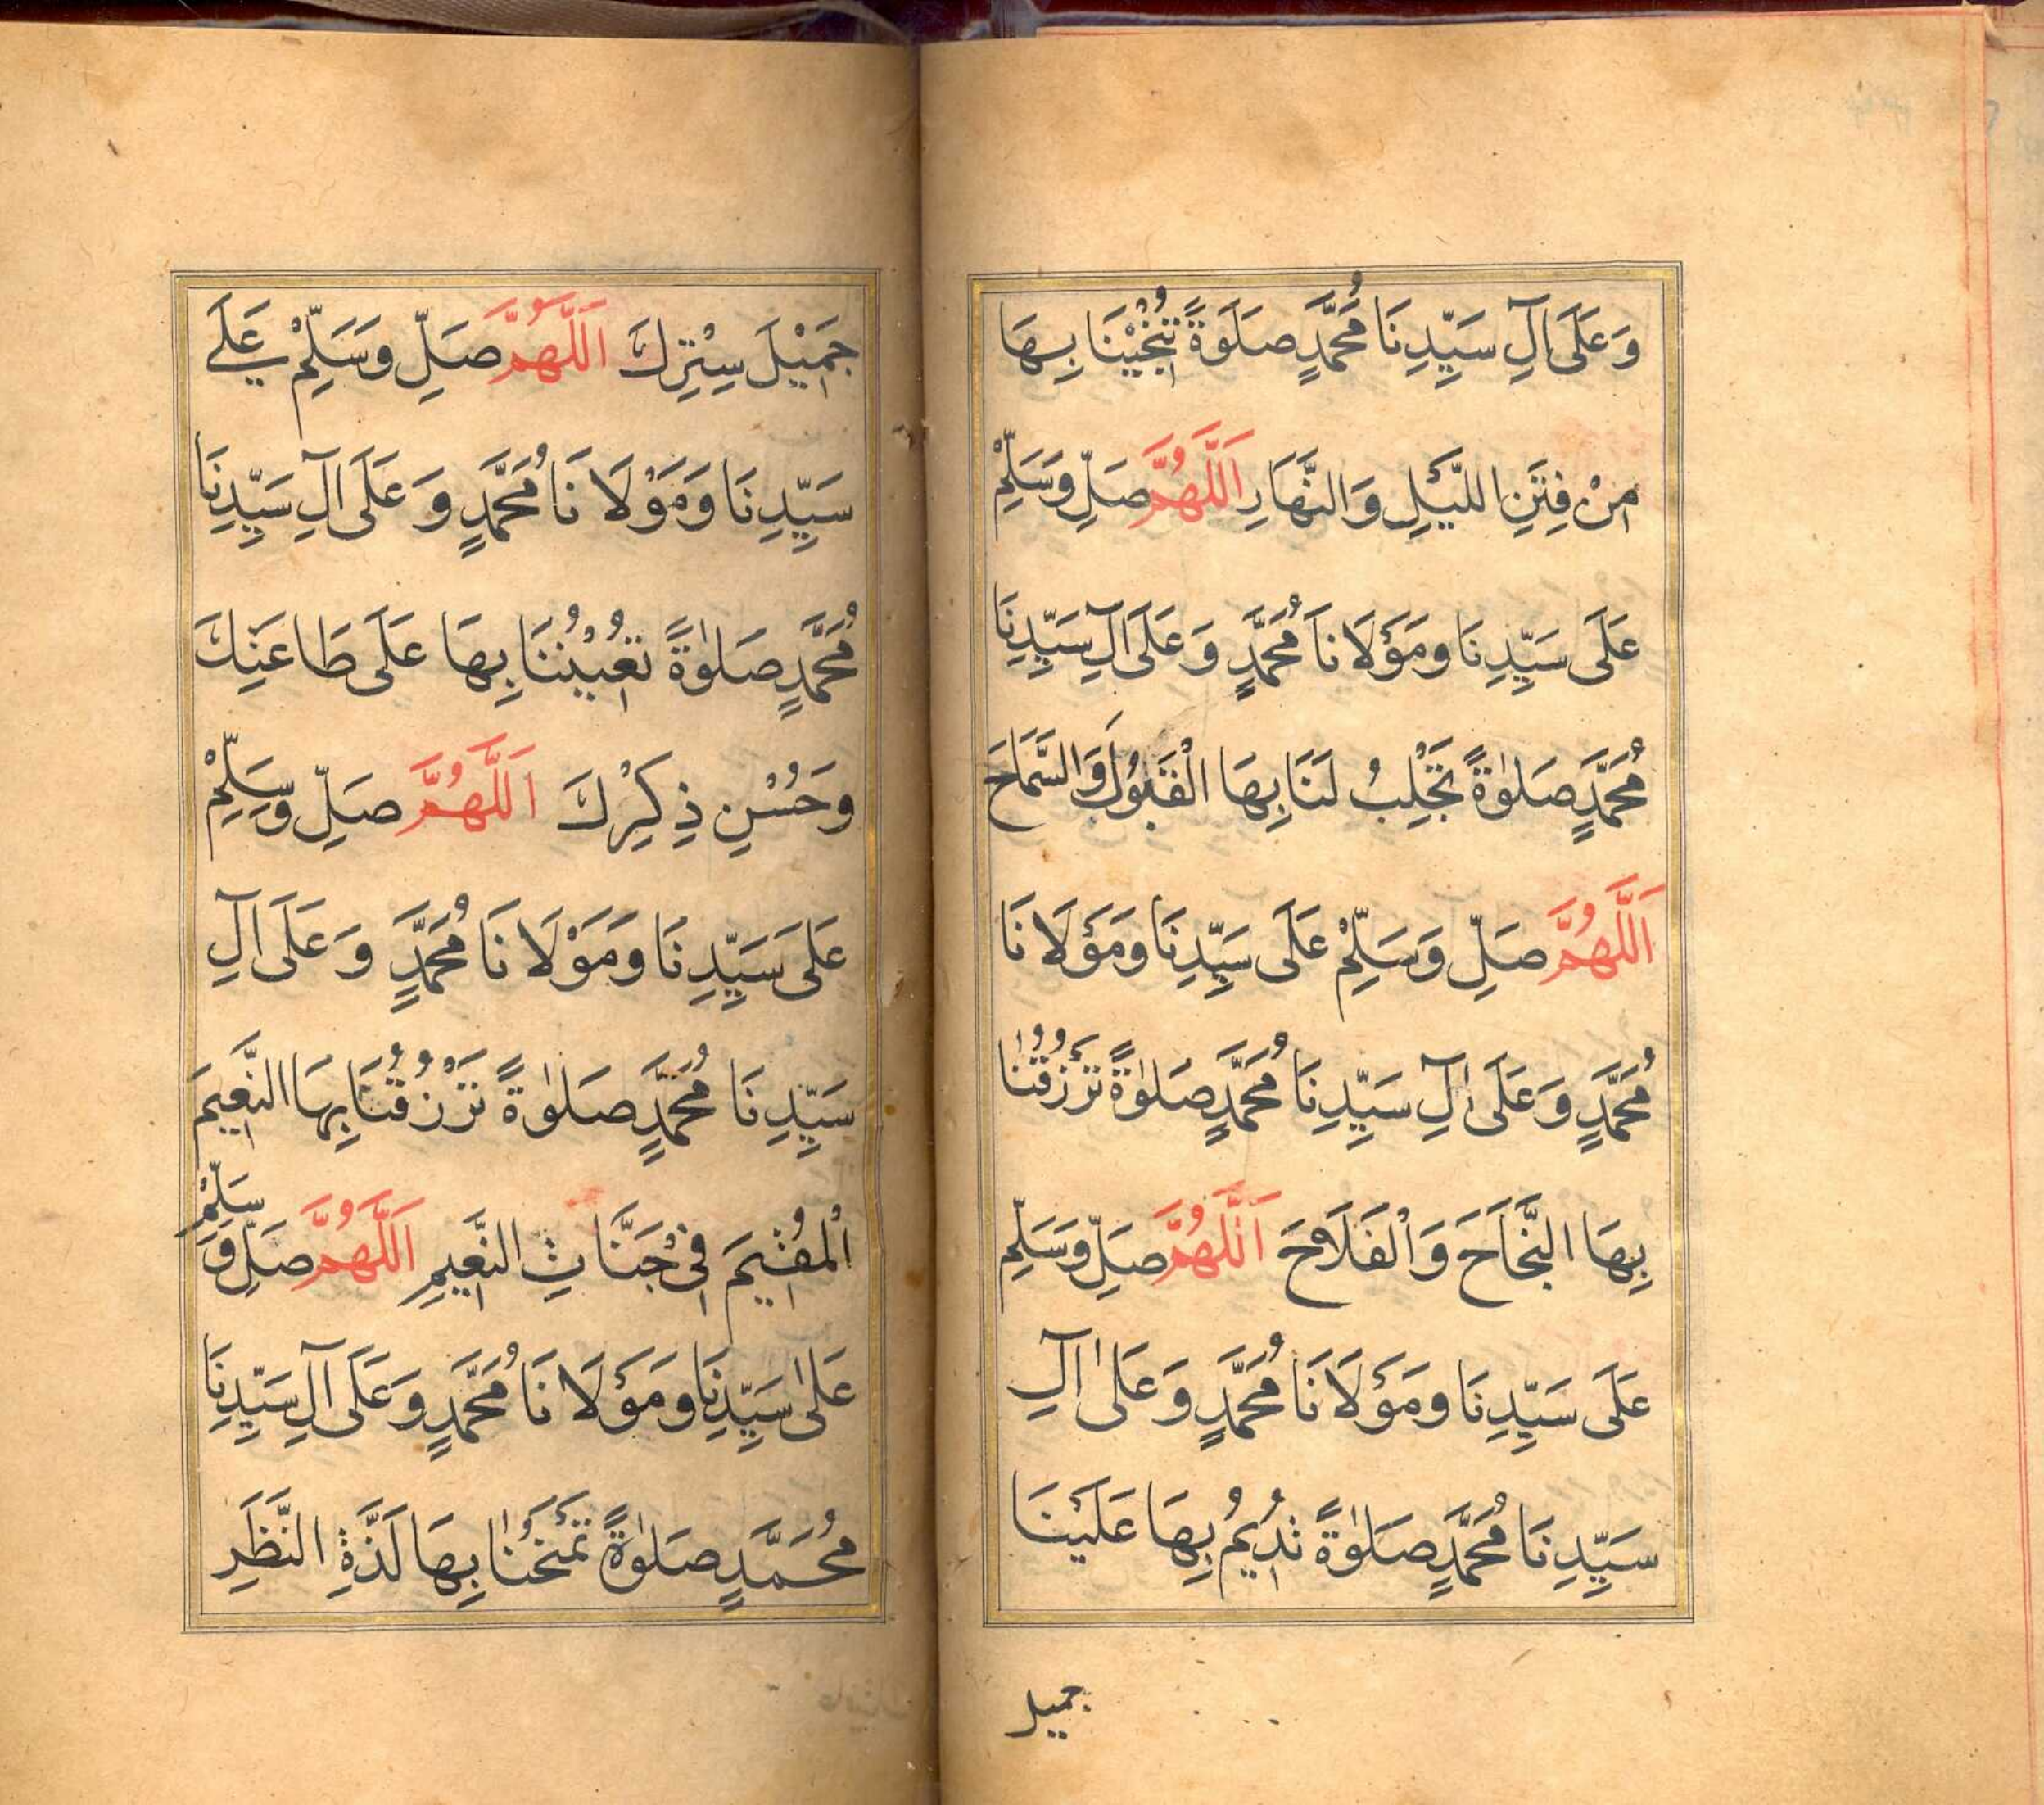 وَعَلَى آلِ سَيِّدِنَا مُحَمَّدٍ صَلَوةً تُنْجِيْنَا بِهَا
مِنْ فِتَنِ اللَّيْلِ وَالنَّهَارِ اَللَّهُمَّ صَلِّ وَسَلِّمْ
عَلَى سَيِّدِنَا وَمَوْلَانَا مُحَمَّدٍ وَعَلَى آلِ سَيِّدِنَا
مُحَمَّدٍ صَلٰوةً تَجْلِبُ لَنَا بِهَا الْقَبُوْلَ وَالسَّمَاحَ
اَللَّهُمَّ صَلِّ وَسَلِّمْ عَلَى سَيِّدِنَا وَمَوْلَانَا
مُحَمَّدٍ وَعَلَى آلِ سَيِّدِنَا مُحَمَّدٍ صَلٰوةً تَرْزُقُنَا
بِهَا النَّجَاحَ وَالْفَلَاحَ اَللَّهُمَّ صَلِّ وَسَلِّمْ
عَلَى سَيِّدِنَا وَمَوْلَانَا مُحَمَّدٍ وَعَلٰى آلِ
سَيِّدِنَا مُحَمَّدٍ صَلٰوةً تُدِيْمُ بِهَا عَلَيْنَا
جميل
جَمِيْلَ سِتْرِكَ اَللَّهُمَّ صَلِّ وَسَلِّمْ عَلَى
سَيِّدِنَا وَمَوْلَانَا مُحَمَّدٍ وَعَلَى آلِ سَيِّدِنَا
مُحَمَّدٍ صَلٰوةً تُعِيْنُنَا بِهَا عَلَى طَاعَتِكَ
وَحُسْنِ ذِكْرِكَ اَللَّهُمَّ صَلِّ وَسَلِّمْ
عَلَى سَيِّدِنَا وَمَوْلَانَا مُحَمَّدٍ وَعَلَى آلِ
سَيِّدِنَا مُحَمَّدٍ صَلٰوةً تَرْزُقُنَا بِهَا النَّعِيْمَ
الْمُقِيْمَ فِيْ جَنَّاتِ النَّعِيْمِ اَللَّهُمَّ صَلِّ وَسَلِّمْ
عَلٰى سَيِّدِنَا وَمَوْلَانَا مُحَمَّدٍ وَعَلَى آلِ سَيِّدِنَا
مُحَمَّدٍ صَلٰوةً تَمْنَحُنَا بِهَا لَذَّةِ النَّظَرِ